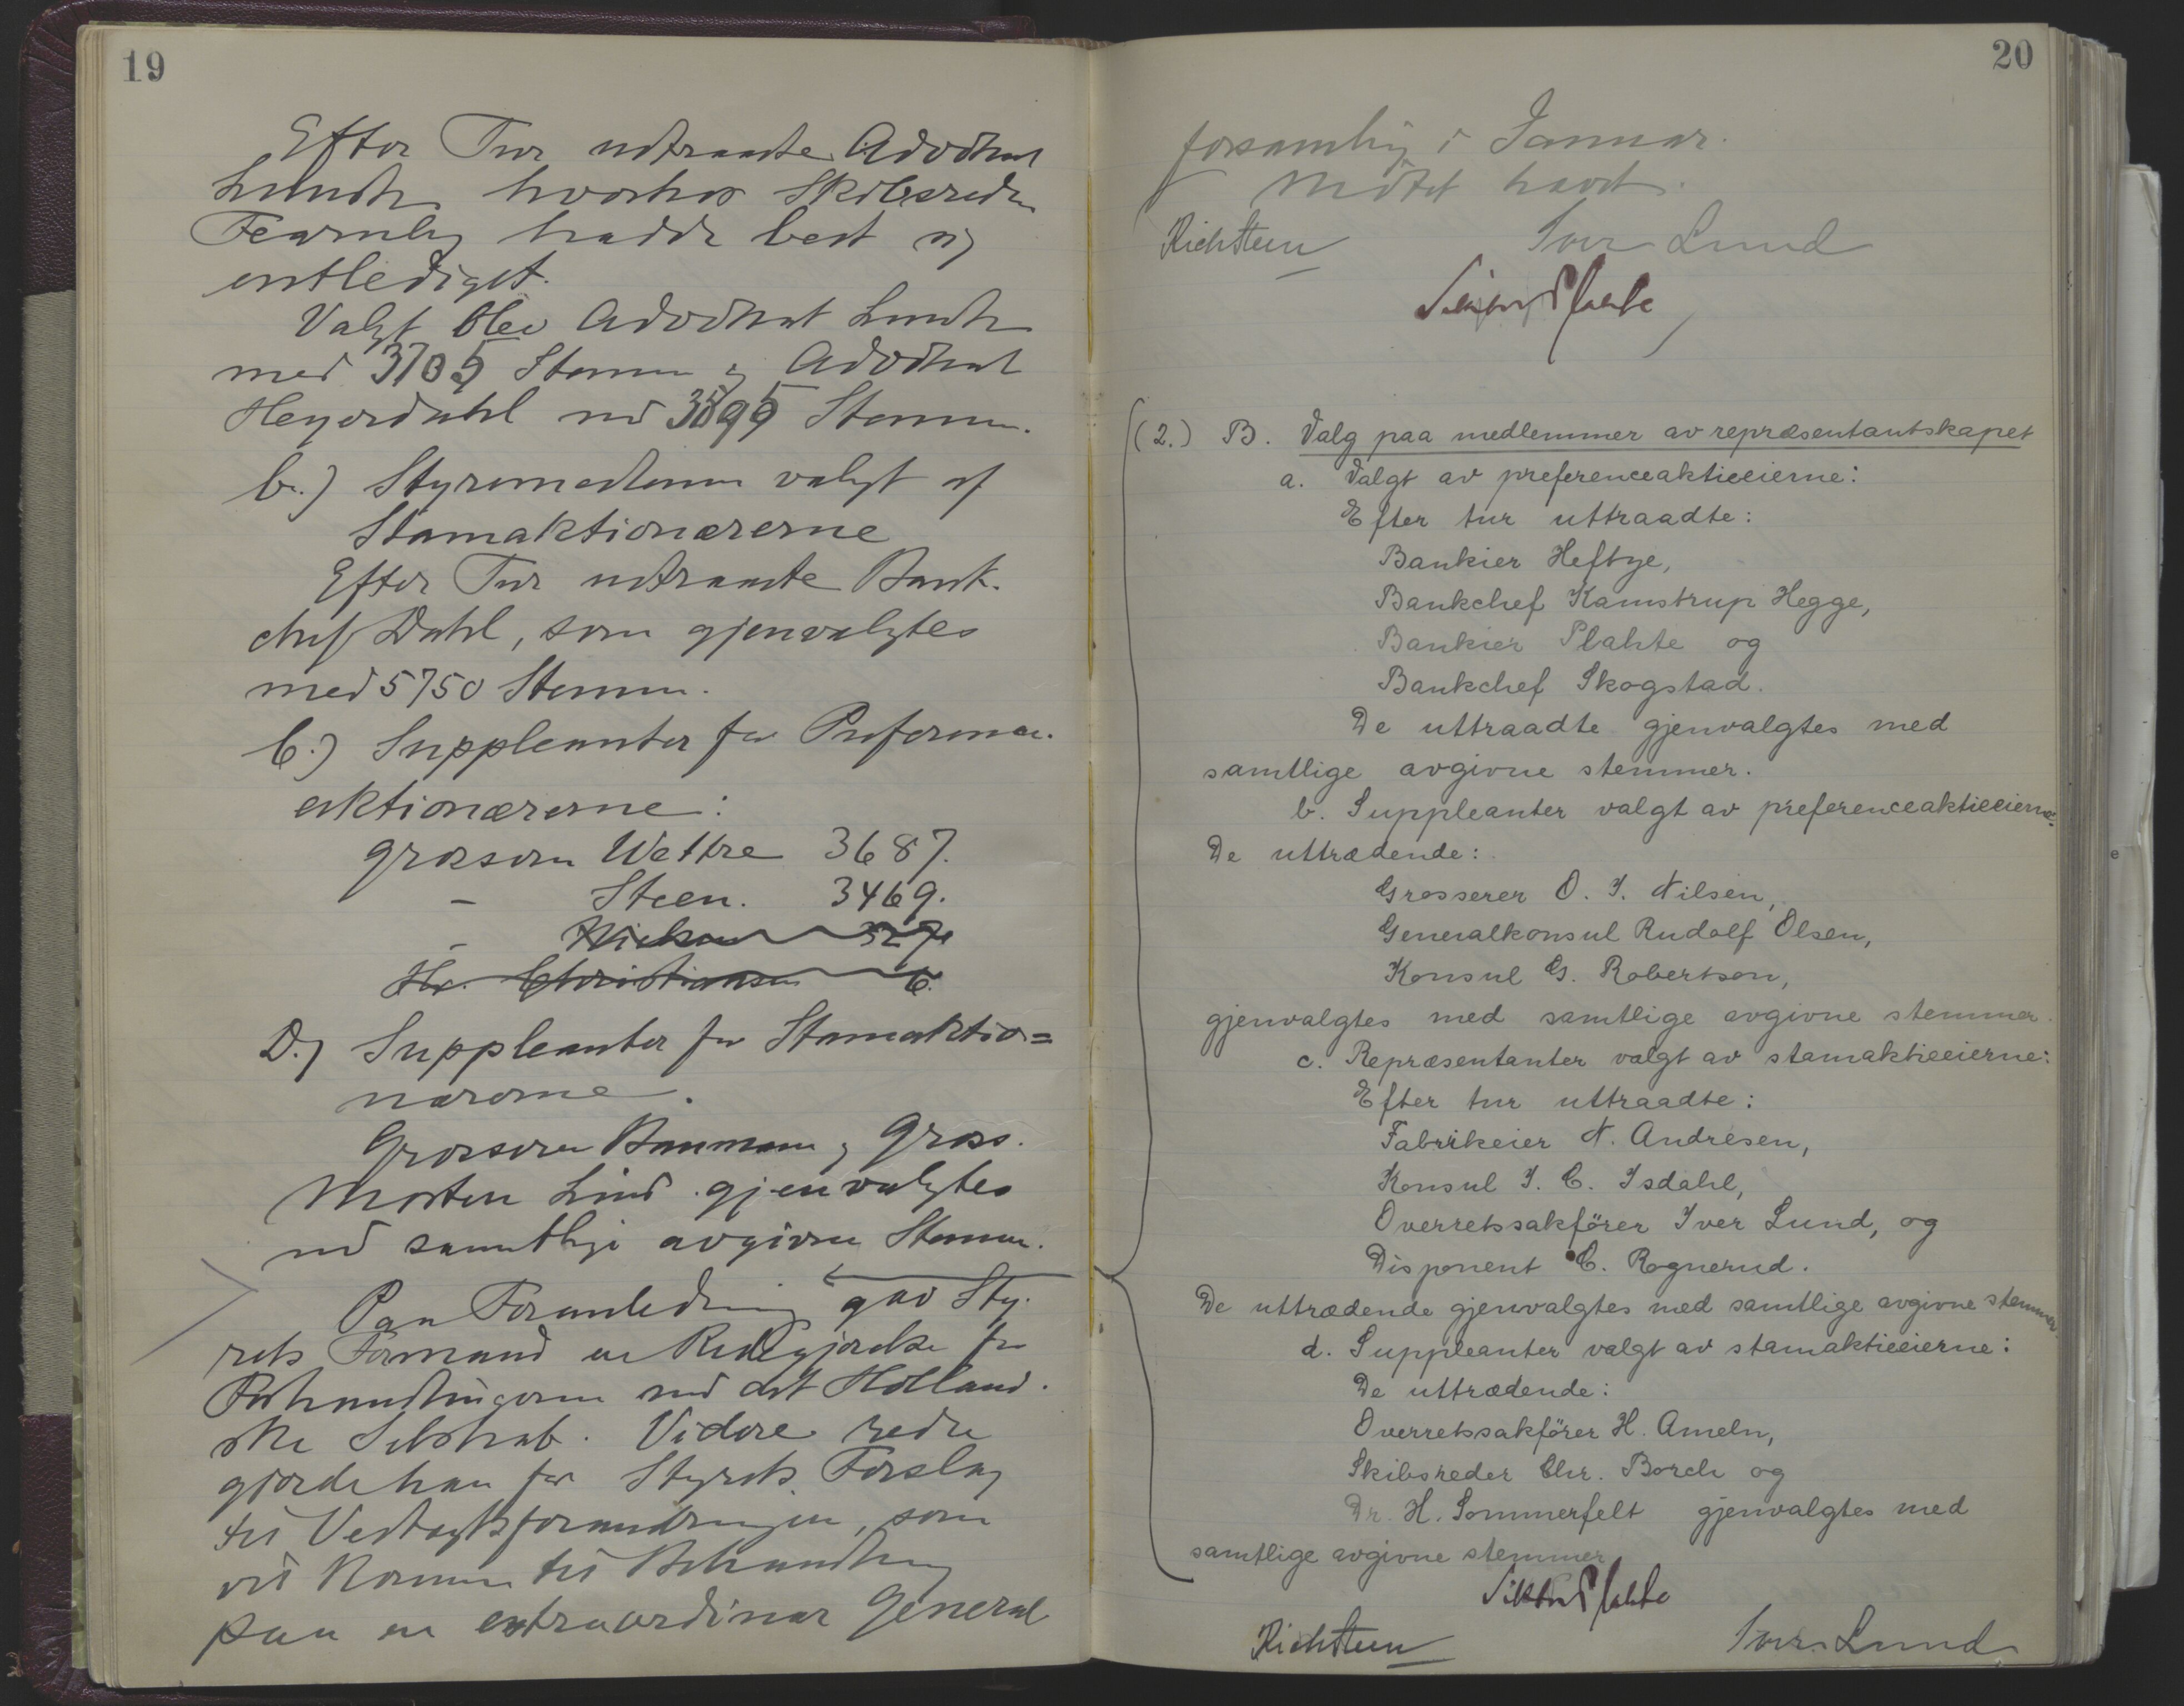 19
Efter Tur udtraadte Advokat
Lunde hvorhos Skibsreder
Fearnley hadde bedt sig
entlediget.
Valgt blev Advokat Lunde
med 3705 Stemmer og Advokat
Heyerdahl med Stemmer.
b.) Styremedlemmer valgt af
Stamaktionærerne
Efter Tur udtraadte Bank-
chef Dahl, som gjenvalgtes
med 5750 Stemmer.
C.) Suppleanter for Preference-
aktionærerne:
Grosserer Wettre 3687.
- Steen. 3469.
-
Hr. Christiansen 6.
D.) Suppleanter for Stamaktio=
nærerne.
Grosserer Baumann og Gross.
Morten Lind gjenvalgtes
med samtlige avgivne Stemmer.
Paa Foranledning gav Sty-
rets Formand en Redegjørelse for
Forhandlingerne med det Holland-
ske Selskab. Videre rede
gjorde han for Styrets Forslag
til Vedtægtsforandringer, som
vil komme til Behandling
paa en extraordinær General
20
forsamling i Januar.
Mødet hævet.
Rich Steen Iver Lund
Viktor Plahte
(2.) B. Valg paa medlemmer av repræsentantskapet
a. Valgt av preferenceaktieeierne:
Efter tur uttraadte:
Bankier Heftye,
Bankchef Kamstrup Hegge,
Bankier Plahte og
Bankchef Skogstad.
De uttraadte gjenvalgtes med
samtlige avgivne stemmer.
b. Suppleanter valgt av preferenceaktieeierne:
De uttrædende:
Grosserer O. J. Nilsen,
Generalkonsul Rudolf Olsen,
Konsul G. Robertson,
gjenvalgtes med samtlige avgivne stemmer.
c. Repræsentanter valgt av stamaktieeierne:
Efter tur uttraadte:
Fabrikeier N. Andresen,
Konsul J. C. Isdahl,
Overretssakförer Iver Lund, og
Disponent C. Rognerud.
De uttrædende gjenvalgtes med samtlige avgivne stemmer
d. Suppleanter valgt av stamaktieeierne:
De uttrædende:
Overretssakförer H. Ameln,
Skibsreder Chr. Borch og
Dr. H. Sommerfelt gjenvalgtes med
samtlige avgivne stemmer
Viktor Plahte
Rich Steen Iver Lund